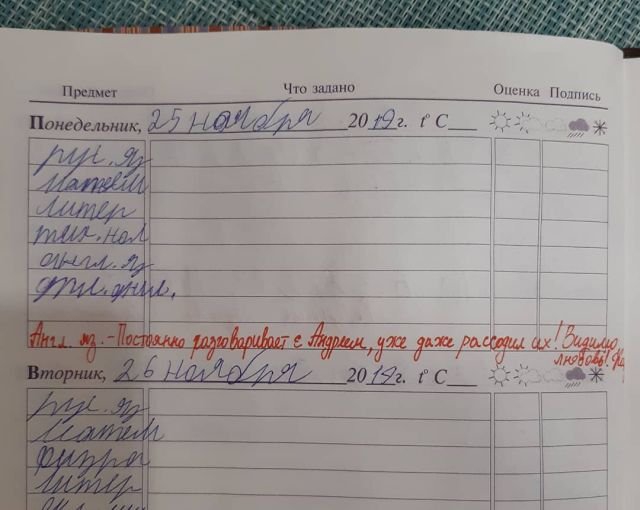 Предмет Что задано Оценка Подпись
Понедельник, 25 ноября 2019г. t° C
рус. яз
матем
литер
тех. нол
англ. яз
Англ. яз. - Постоянно разговаривает с Андреем, уже даже рассадил их! Видимо,
любовь!
Вторник, 26 ноября 2019г. t° C
рус. яз
матем
физра
литер